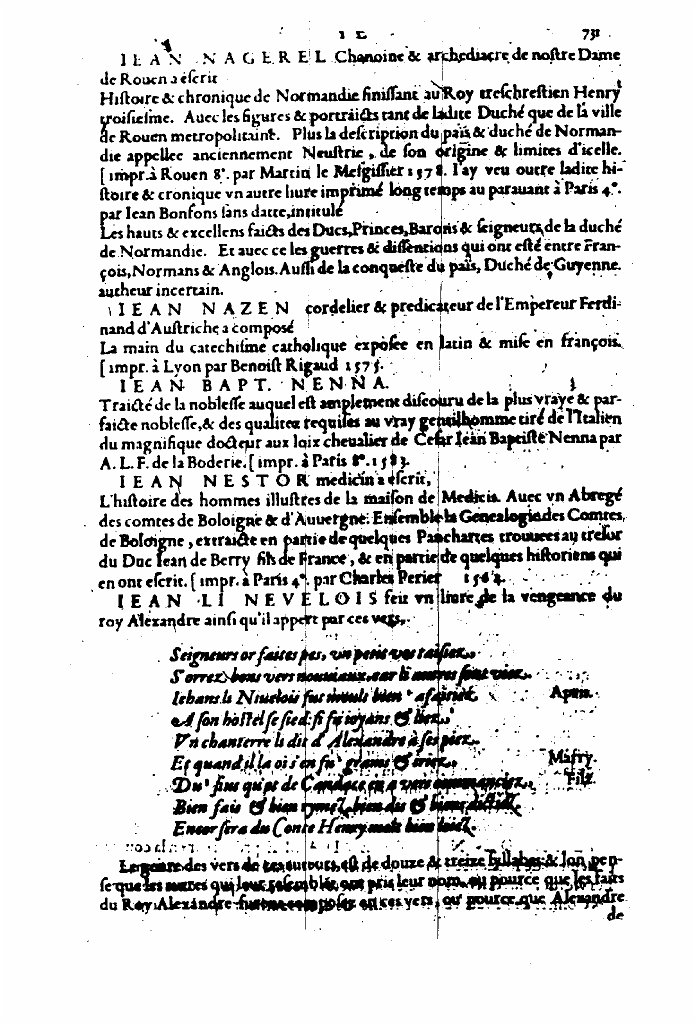 I E 731
IEAN NAGEREL Chanoine & archediacre de nostre Dame
de Rouen a escrit
Histoire & chronique de Normandie finissant au Roy treschrestien Henry
troisiesme. Auec les figures & portraicts tant de ladite Duché que de la ville
de Rouen metropolitaint. Plus la description du païs & duché de Norman-
die appellee anciennement Neustrie, de son origine & limites d'icelle.
[impr. à Rouen 8°. par Martin le Mesgissier 1578. I'ay veu outre ladite hi-
stoire & cronique vn autre liure imprimé long temps au parauant à Paris 4°.
par Iean Bonfons sans datte, intitulé
Les hauts & excellens faicts des Ducs, Princes, Barons & seigneurs de la duché
de Normandie. Et auec ce les guerres & dissentions qui ont esté entre Fran-
çois, Normans & Anglois. Aussi de la conqueste du païs, Duché de Guyenne.
autheur incertain.
IEAN NAZEN cordelier & predicateur de l'Empereur Ferdi-
nand d'Austriche a composé
La main du catechisme catholique exposee en latin & mise en françois.
[impr. à Lyon par Benoist Rigaud 1575.
IEAN BAPT. NENNA.
Traicté de la noblesse auquel est amplement discouru de la plus vraye & par-
faicte noblesse, & des qualitez requises au vray gentilhomme tiré de l'Italien
du magnifique docteur aux loix cheualier de Cesar Iean Baptiste Nenna par
A. L. F. de la Boderie. [impr. à Paris 8°. 1583.
IEAN NESTOR medicin a escrit,
L'histoire des hommes illustres de la maison de Medicis. Auec vn Abregé
des comtes de Boloigne & d'Auuergne. Ensemble la Genealogie des Comtes
de Boloigne, extraicte en partie de quelques Panchartes trouuees au tresor
du Duc Iean de Berry fils de France, & en partie de quelques historiens qui
en ont escrit. [impr. à Paris 4°. par Charles Perier 1564.
IEAN LI NEVELOIS feit vn liure de la vengeance du
roy Alexandre ainsi qu'il appert par ces vers.
Seigneurs or faites pes, vn petit vos taisiez,
S'orrez bons vers nouuiaux, car li autres sont viez.
Iehans li Niuelois fut moult bien afaitiez,
A son hostel se sied si fu ioyans & liez.
Vn chanterre li dit d'Alexandre à ses piez,
Et quand il la oi s'en fu grams & iriez.
Mafry.
Du fius qui
Filz
Bien fais & bien rymez, bien dis & bien dictiez,
Encor sera du Conte Henry
Le genre des vers de ces autours, est de douze & treize syllabes & lon pen-
se que les autres qui leur resemblent ont pris leur nom, ou pource que les faits
du Roy Alexandre furent composez en ces vers, ou pource que Alexandre
de